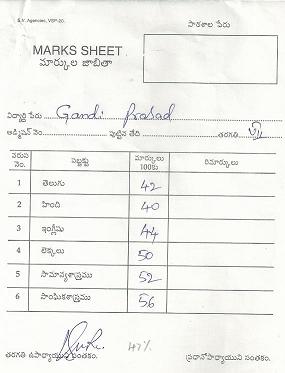 S.V. Agencies, VSP-20.
పాఠశాల పేరు
MARKS SHEET
మార్కుల జాబితా
విద్యార్థి పేరు Gandi Prasad
అడ్మిషన్ నెం. పుట్టిన తేది తరగతి VII
వరుస నెం. సబ్జక్టు మార్కులు 100కు రిమార్కులు
1 తెలుగు 42
2 హింది 40
3 ఇంగ్లీషు 44
4 లెక్కలు 50
5 సామాన్యశాస్త్రము 52
6 సాంఘికశాస్త్రము 56
47%
తరగతి ఉపాధ్యాయుని సంతకం. ప్రధానోపాధ్యాయుని సంతకం.